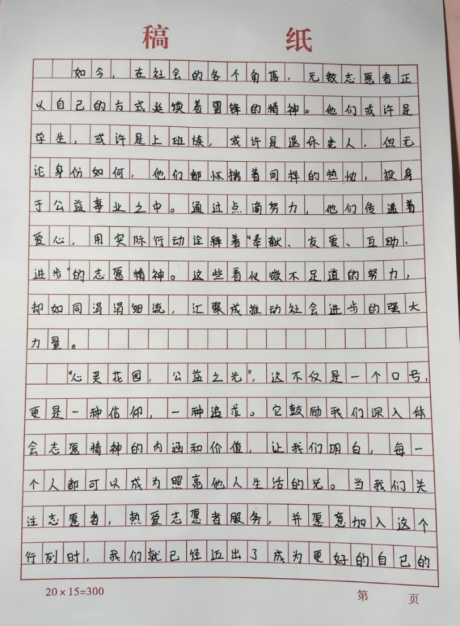 稿 纸
如今，在社会的各个角落，无数志愿者正
以自己的方式延续着雷锋的精神。他们或许是
学生，或许是上班族，或许是退休老人，但无
论身份如何，他们都怀揣着同样的热忱，投身
于公益事业之中。通过点滴努力，他们传递着
爱心，用实际行动诠释着“奉献、友爱、互助、
进步”的志愿精神。这些看似微不足道的努力，
却如同涓涓细流，汇聚成推动社会进步的强大
力量。
“心灵花园，公益之光”，这不仅是一个口号，
更是一种信仰，一种追求。它鼓励我们深入体
会志愿精神的内涵和价值，让我们明白，每一
个人都可以成为照亮他人生活的光。当我们关
注志愿者，热爱志愿者服务，并愿意加入这个
行列时，我们就已经迈出了成为更好的自己的
20×15=300 第 页